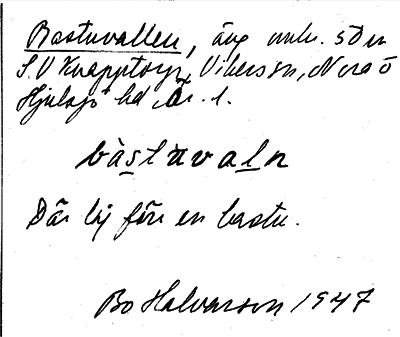 Bastuvallen, äng omkr. 500 m
S.V Knapptorp, Vikersvn, Nora o
Hjulsjö hd Ör. l.
bàstuvaln
Där låg förr en bastu.
Bo Halvarson 1947